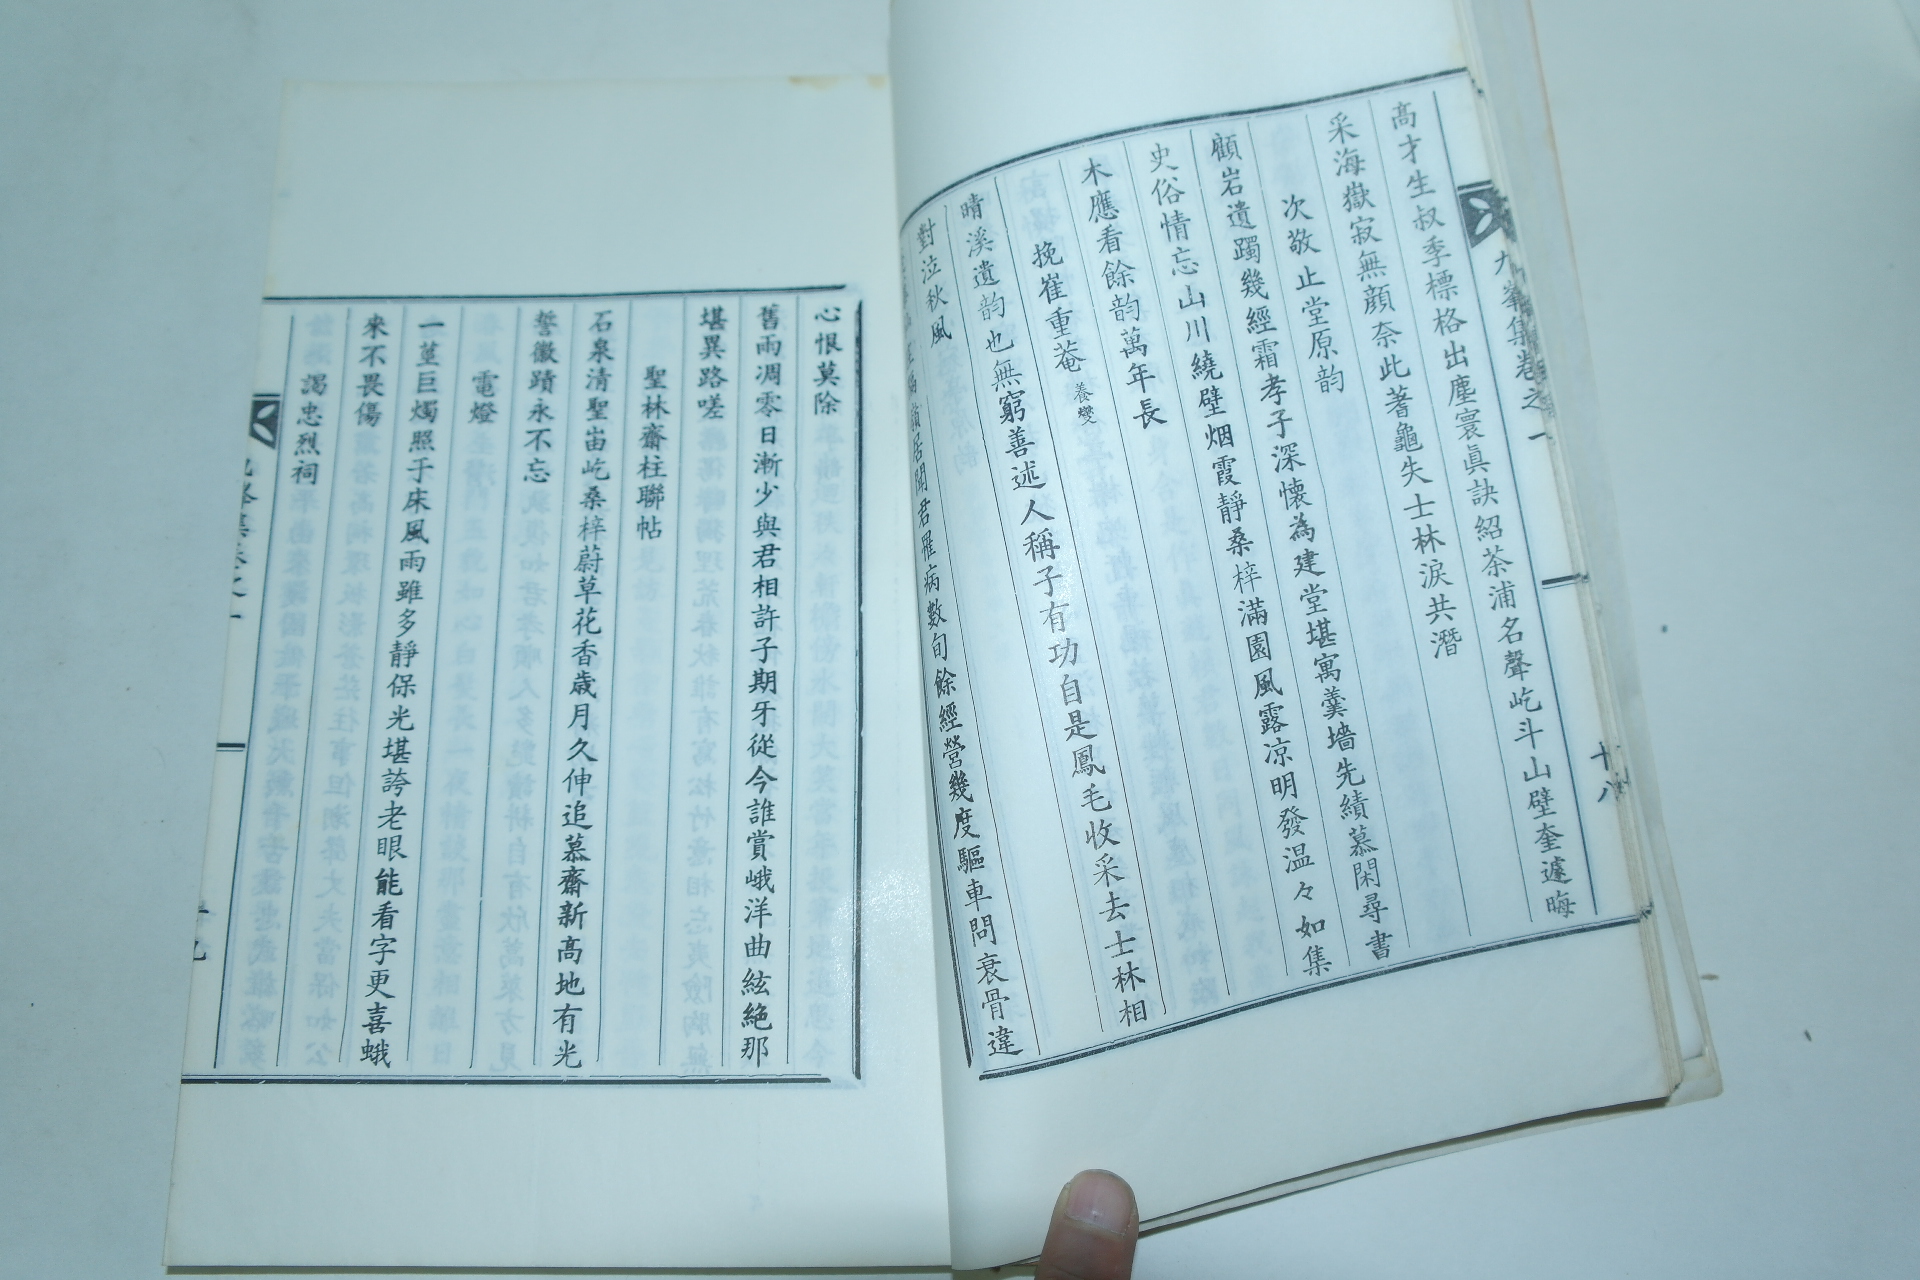 九峯集卷之一
十八
高才生叔季標格出塵寰眞訣紹茶浦名聲屹斗山壁奎遽晦
采海嶽寂無顔奈此蓍龜失士林淚共潛
次敬止堂原韵
顧岩遺躅幾經霜孝子深懷為建堂堪寓羹墻先績慕閑尋書
史俗情忘山川繞壁烟霞靜桑梓滿園風露凉明發温々如集
木應看餘韵萬年長
挽崔重菴 養燮
晴溪遺韵也無窮善述人稱子有功自是鳳毛收采去士林相
對泣秋風
居聞君罹病數旬餘經營幾度驅車問衰骨違
心恨莫除
舊雨凋零日漸少與君相許子期牙從今誰賞峨洋曲絃絶那
堪異路嗟
聖林齋柱聯帖
石泉清聖峀屹桑梓蔚草花香歲月久伸追慕齋新高地有光
誓徽蹟永不忘
電燈
一莖巨燭照于床風雨雖多靜保光堪誇老眼能看字更喜蛾
來不畏傷
謁忠烈祠